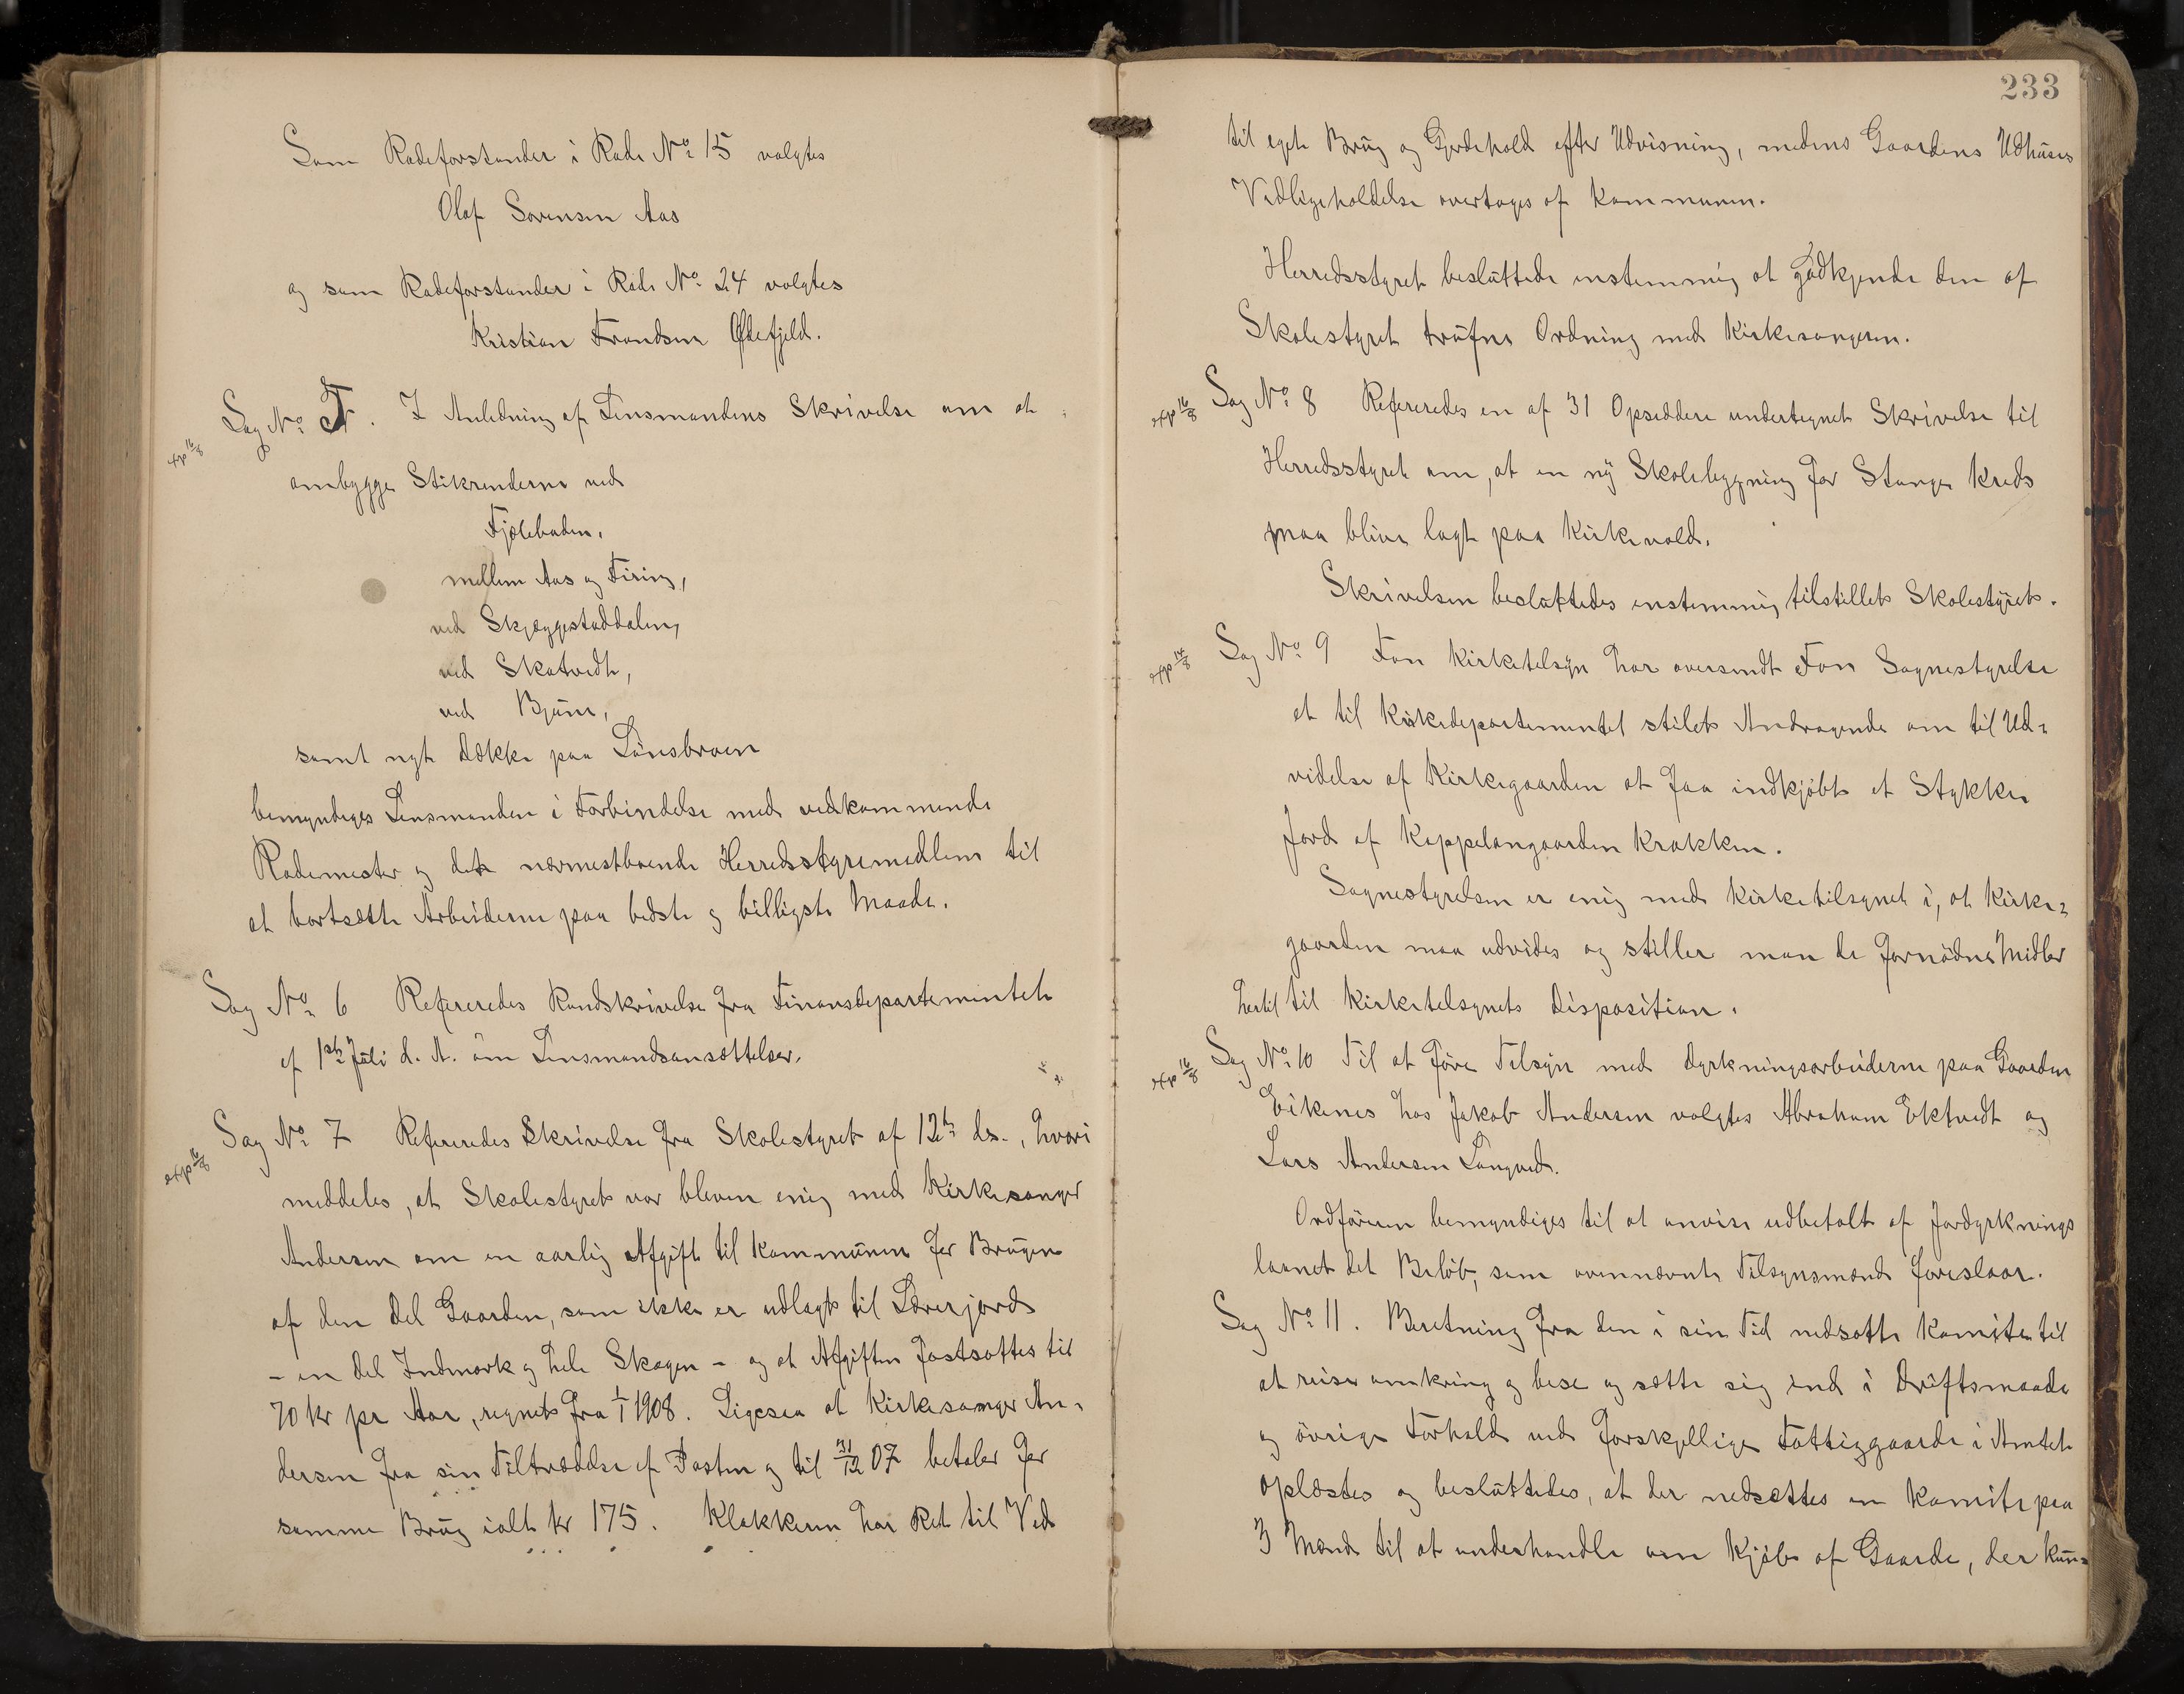 Som Rodeforstander i Rode No 15 valgtes
Olaf Sørensen Aas
og som Rodeforstander i Rode No 24 valgtes
Kristian Frandsen Ødefjeld.
Sag No 5. I Anledning af Lensmandens Skrivelse om at
exp 16/8
ombygge Stikrenderne ved
Fjøleboden,
mellem Aas og Firing,
ved Skjeggestaddalen,
ved Skatvedt,
ved Bjune,
samt nyt Dække paa Lønsbroen
bemyndiges Lensmanden i Forbindelse med vedkommende
Rodemester og det nærmestboende Herredsstyremedlem til
at bortsætte Arbeiderne paa bedste og billigste Maade.
Sag No 6 Refereredes Rundskrivelse fra Finansdepartementet
af 1ste Juli d. A. om Lensmandsansættelser.
Sag No 7 Refereredes Skrivelse fra Skolestyret af 12te ds., hvori
exp 16/8
meddeles, at Skolestyret var bleven enig med Kirkesanger
Andersen om en aarlig Afgift til Kommunen for Brugen
af den Del Gaarden, som ikke er udlagt til Lærerjord
– en Del Indmark og hele Skogen – og at Afgiften fastsattes til
70 kr pr Aar, regnet fra 1/1 1908. Ligesaa at Kirkesanger An-
dersen fra sin Tiltrædelse af Posten og til 31/12 07 betaler for
samme Brug ialt kr 175. Klokkeren har Ret til Ved
233
til eget Brug og Gjerdehold efter Udvisning, medens Gaardens Udhuses
Vedligeholdelse overtages af Kommunen.
Herredsstyret besluttede enstemmig at godkjende den af
Skolestyret trufne Ordning med Kirkesangeren.
Sag No 8 Refereredes en af 31 Opsiddere undertegnet Skrivelse til
exp 16/8
Herredsstyret om, at en ny Skolebygning for Stange Kreds
maa blive lagt paa Kirkevold.
Skrivelsen besluttedes enstemmig tilstillet Skolestyret.
Sag No 9 Fon Kirketilsyn har oversendt Fon Sognestyrelse
exp 14/8
et til Kirkedepartementet stilet Andragende om til Ud-
videlse af Kirkegaarden at faa indkjøbt et Stykke
Jord af Kappelangaarden Krakken.
Sognestyrelsen er enig med Kirketilsynet i, at Kirke-
gaarden maa udvides og stiller man de fornødne Midler
hertil til Kirketilsynets Disposition.
Sag No 10 Til at føre Tilsyn med Dyrkningsarbeiderne paa Gaarden
exp 16/8
Eikenes hos Jakob Andersen valgtes Abraham Ektvedt og
Lars Andersen Langved.
Ordføreren bemyndiges til at anvise udbetalt af Jorddyrknings
laanet det Beløb, som ovennævnte Tilsynsmænd foreslaar.
Sag No 11. Beretning fra den i sin Tid nedsatte Komite til
at reise omkring og bese og sætte sig ind i Driftsmaade
og øvrige Forhold ved forskjellige Fattiggaarde i Amtet
oplæstes og besluttedes, at der nedsættes en Komite paa
3 Mænd til at underhandle om Kjøb af Gaarde, der kun-